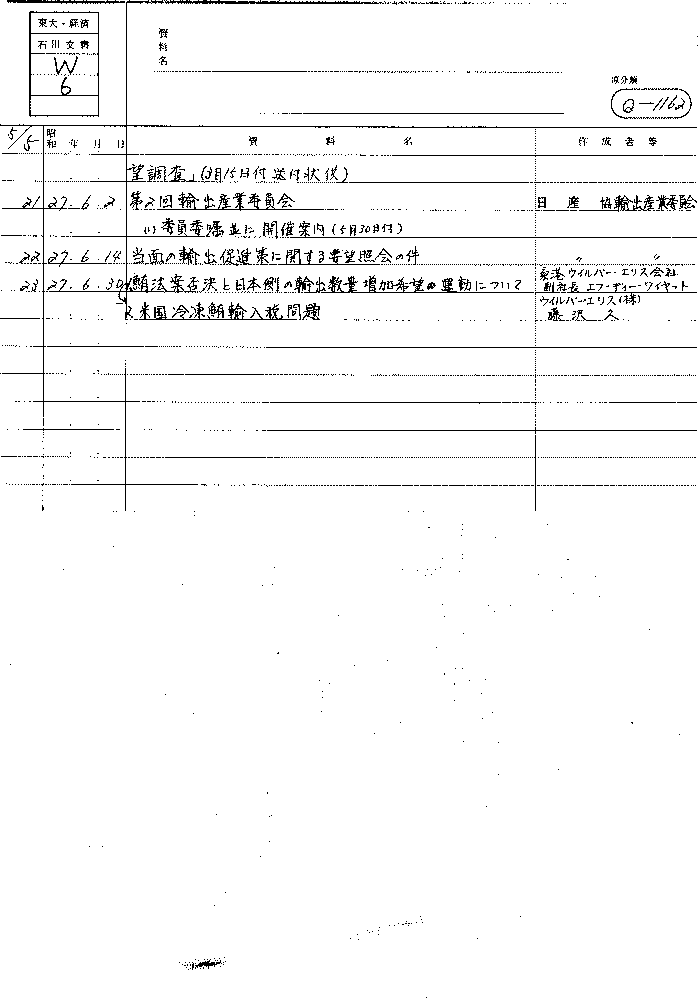 東大・経済
石川文書
W
6
資料名
原分類
Q-1162
5/5 昭和 年 月 日 資料名 作成者等
望調査」(3月15日付送付状後)
21 27. 6. 2 第2回輸出産業委員会 日産協輸出産業委員会
(1) 委員委嘱並に開催案内(5月30日付)
22 27. 6. 14 当面の輸出促進策に関する要望照会の件 〃 〃
23 27. 6. 30 1. 鮪法案否決と日本側の輸出数量増加希望の運動について 桑港ウイルバー・エリス会社
副社長 エフ・ディー・ワイヤット
2. 米国冷凍鮪輸入税問題 ウイルバー・エリス(株)
藤沢久